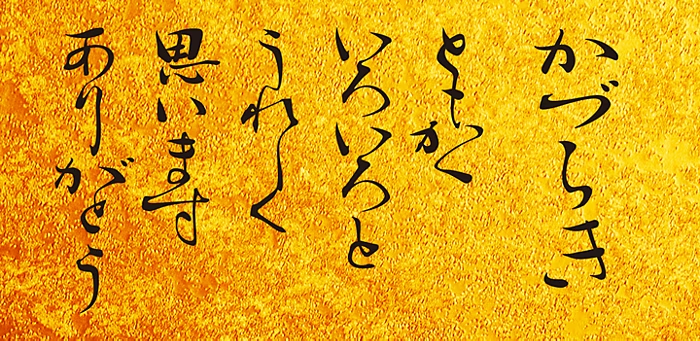 かづらき
ともかく
いろいろと
うれしく
思います
ありがとう